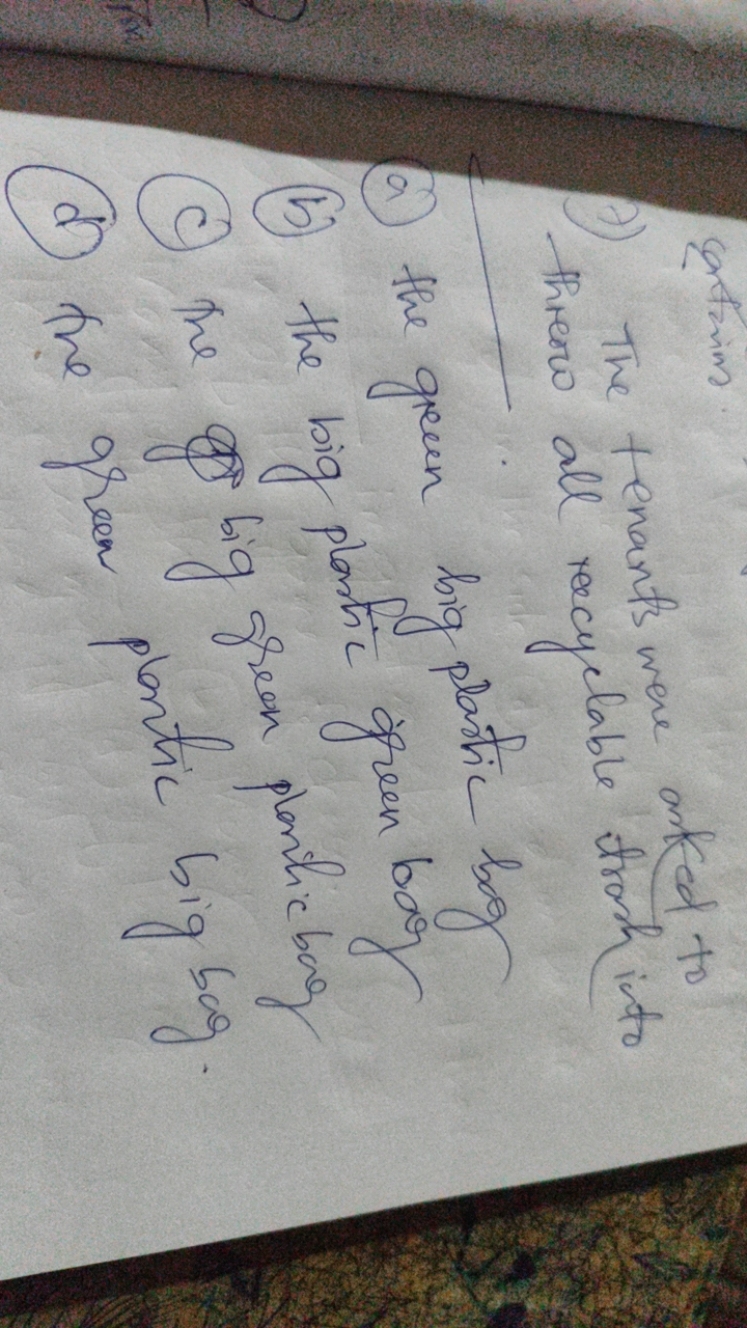 contains
7) The tenants were asked to
throw all recyclable trash into
(a) the green big plastic bag
(b) the big plastic green bag
(c) The big green plastic bag
(d) The green plastic big bag.